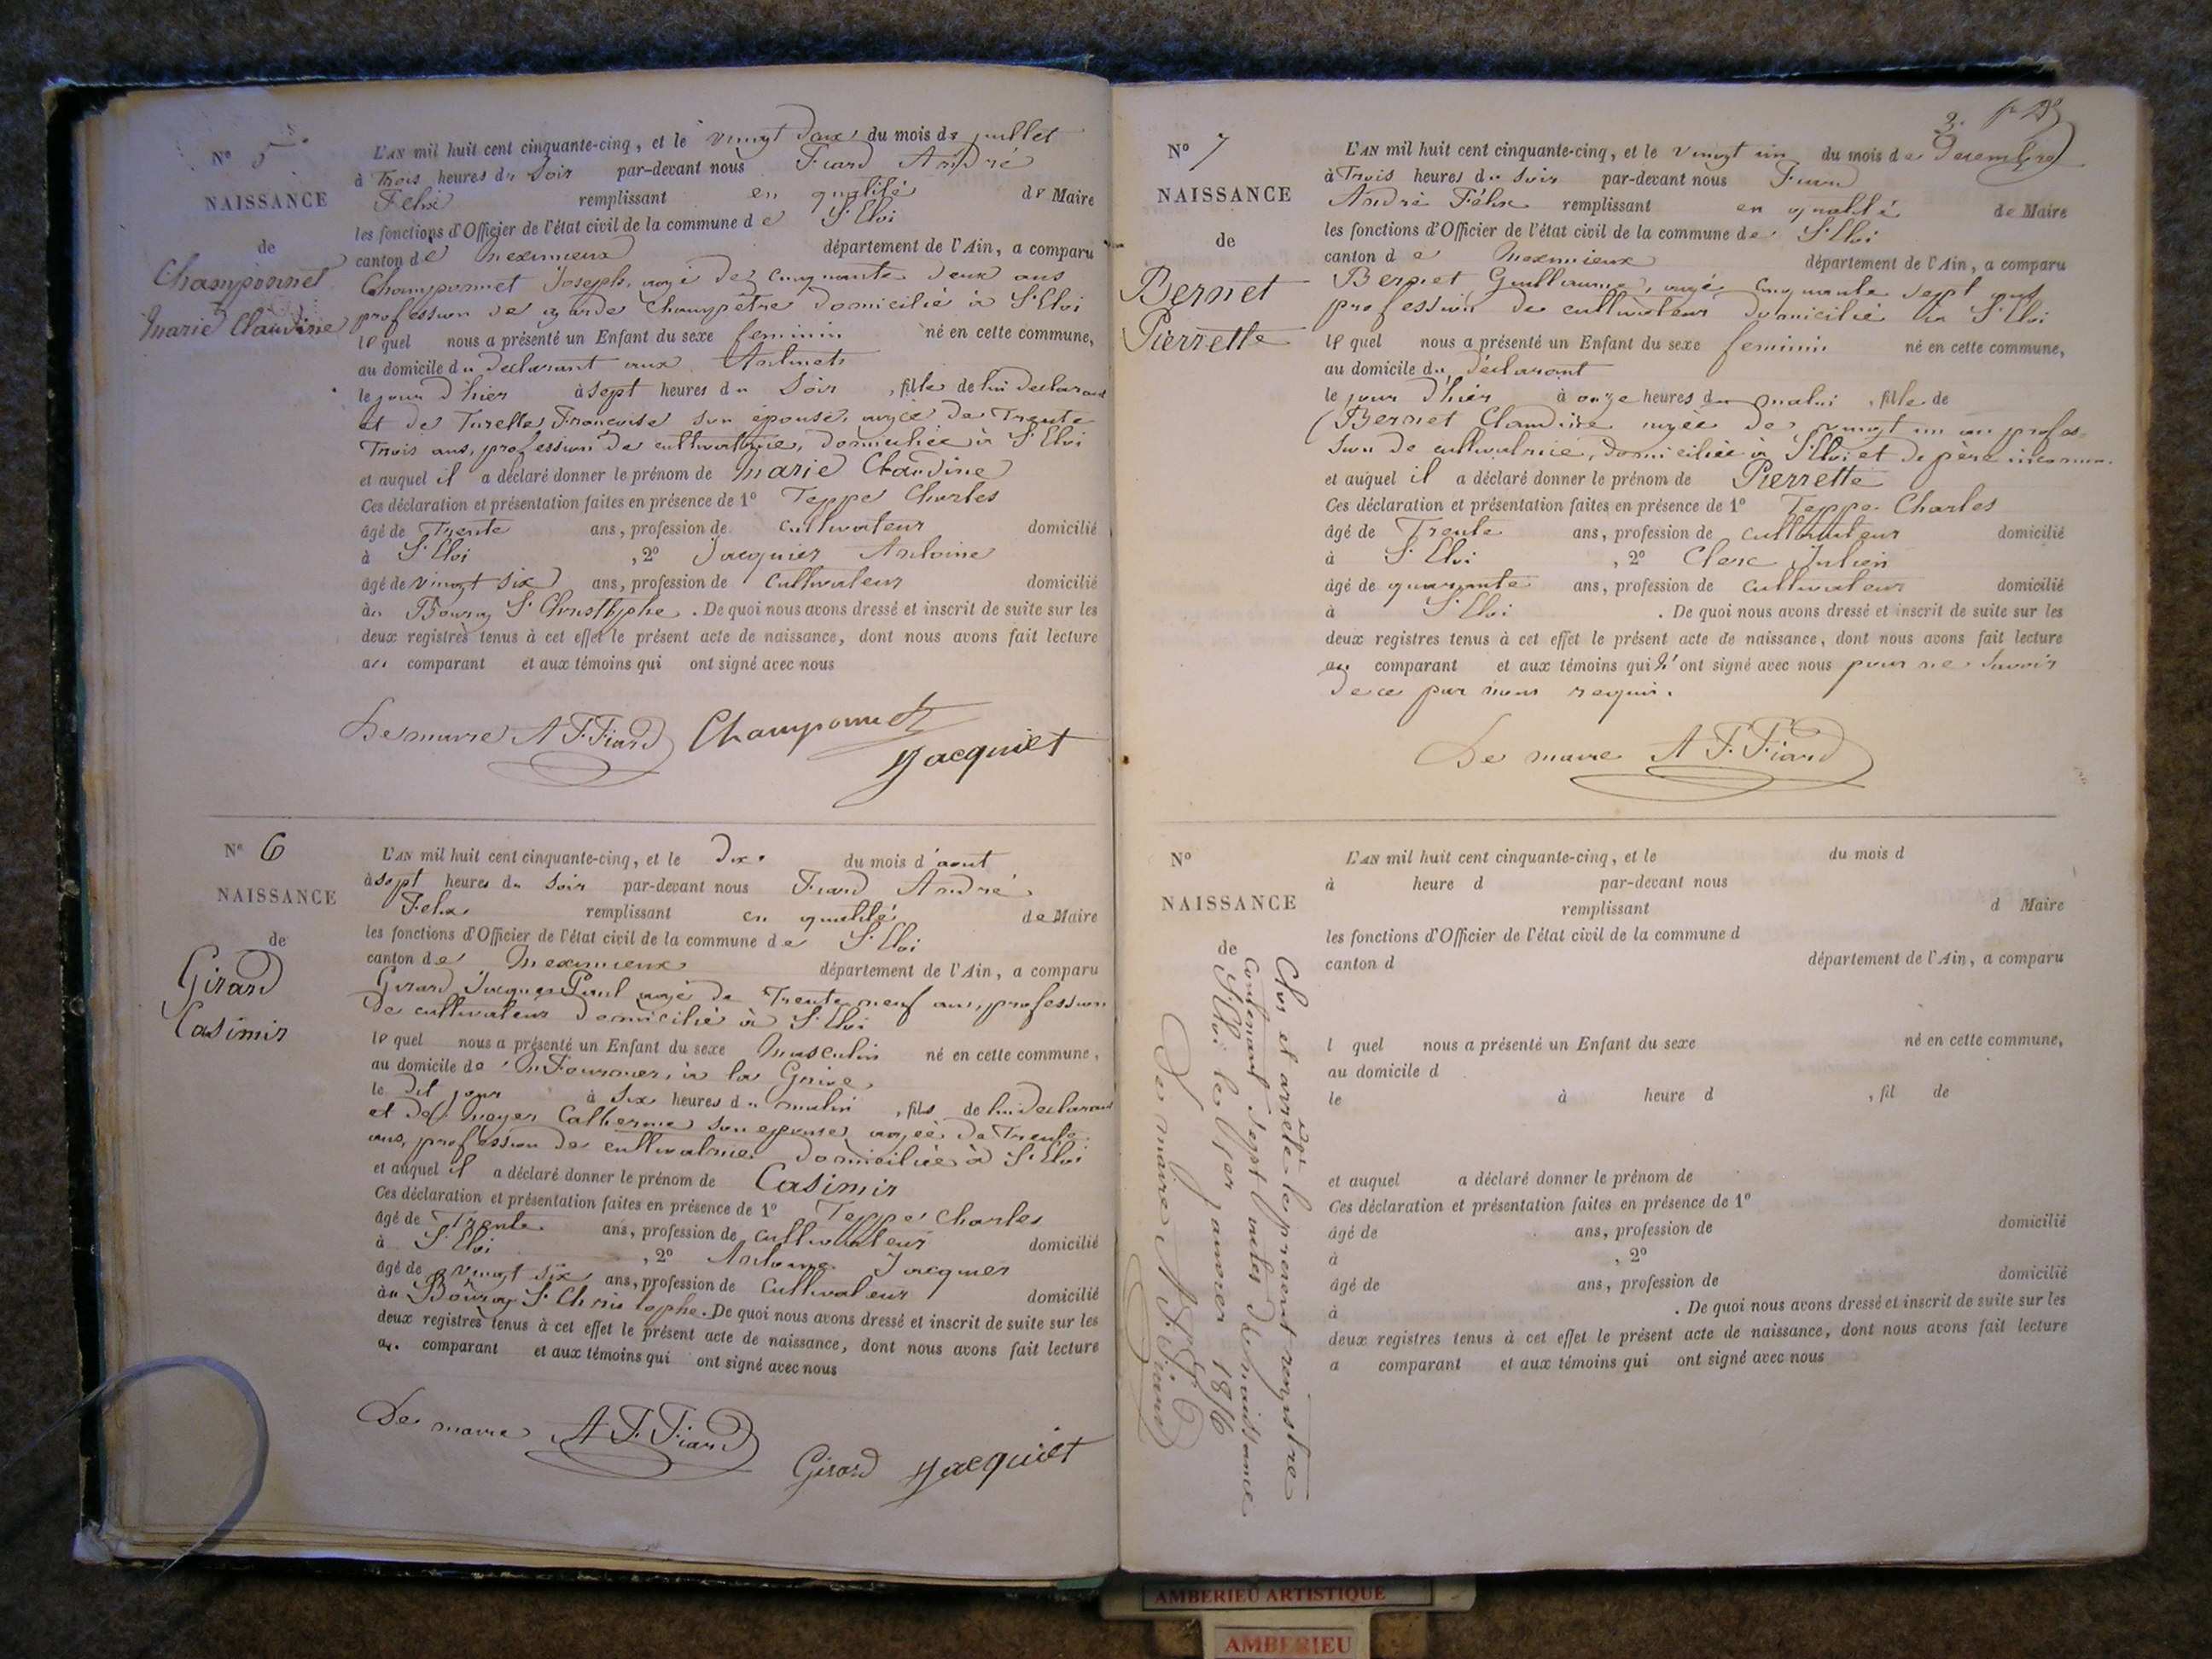 N° 5
NAISSANCE
de
Champonnet
Marie Claudine
L'AN mil huit cent cinquante-cinq, et le vingt deux du mois de juillet
à Trois heures du soir par-devant nous Fiard André
Félix remplissant en qualité de Maire
les fonctions d'Officier de l'état civil de la commune de St Eloi
canton de Meximieux département de l'Ain, a comparu
Champonnet Joseph, âgé de cinquante deux ans
profession de garde Champêtre domicilié à St Eloi
lequel nous a présenté un Enfant du sexe feminin né en cette commune,
au domicile du declarant aux
le jour d'hier à sept heures du soir, fille de lui declarant
et de Françoise son épouse, agée de Trente
Trois ans, profession de cultivatrice, domiciliée à St Eloi
et auquel il a déclaré donner le prénom de Marie Claudine
Ces déclaration et présentation faites en présence de 1° Teppe Charles
âgé de Trente ans, profession de cultivateur domicilié
à St Eloi, 2° Jacquier Antoine
âgé de vingt six ans, profession de Cultivateur domicilié
au Bourg St Christophe. De quoi nous avons dressé et inscrit de suite sur les
deux registres tenus à cet effet le présent acte de naissance, dont nous avons fait lecture
au comparant et aux témoins qui ont signé avec nous
Le maire A F. Fiard Champonnet
Jacquiet
N° 6
NAISSANCE
de
Girard
Casimir
L'AN mil huit cent cinquante-cinq, et le dix du mois d'aout
à sept heures du soir par-devant nous Fiard André
Felix remplissant en qualité de Maire
les fonctions d'Officier de l'état civil de la commune de St Eloi
canton de Meximieux département de l'Ain, a comparu
Girard Jacques Paul agé de Trente neuf ans, profession
de cultivateur domicilié à St Eloi
lequel nous a présenté un Enfant du sexe Masculin né en cette commune,
au domicile de à la
le dit jour à six heures du matin, fils de lui declarant
et de Moyer Catherine son epouse, agée de Trente
ans, profession de cultivatrice domiciliée à St Eloi
et auquel il a déclaré donner le prénom de Casimir
Ces déclaration et présentation faites en présence de 1° Teppe Charles
âgé de Trente ans, profession de cultivateur domicilié
à St Eloi, 2° Antoine Jacquier
âgé de vingt six ans, profession de Cultivateur domicilié
au Bourg St Christophe. De quoi nous avons dressé et inscrit de suite sur les
deux registres tenus à cet effet le présent acte de naissance, dont nous avons fait lecture
au comparant et aux témoins qui ont signé avec nous
Le maire A F. Fiard
Girard Jacquiet
N° 7
NAISSANCE
de
Bernet
Pierrette
L'AN mil huit cent cinquante-cinq, et le vingt un du mois de Decembre
à Trois heures du soir par-devant nous Fiard
André Félix remplissant en qualité de Maire
les fonctions d'Officier de l'état civil de la commune de St Eloi
canton de Meximieux département de l'Ain, a comparu
Bernet Guillaume, agé, cinquante sept ans
profession de cultivateur domicilié à St Eloi
lequel nous a présenté un Enfant du sexe feminin né en cette commune,
au domicile du déclarant
le jour d'hier à onze heures du matin, fille de
Bernet Claudine agée de vingt un an profes-
sion de cultivatrice, domiciliée à St Eloi et de père inconnu.
et auquel il a déclaré donner le prénom de Pierrette
Ces déclaration et présentation faites en présence de 1° Teppe Charles
âgé de Trente ans, profession de cultivateur domicilié
à St Eloi, 2° Clerc Julien
âgé de quarante ans, profession de cultivateur domicilié
à St Eloi. De quoi nous avons dressé et inscrit de suite sur les
deux registres tenus à cet effet le présent acte de naissance, dont nous avons fait lecture
au comparant et aux témoins qui n'ont signé avec nous pour ne savoir
de ce par nous requis.
Le maire A F. Fiard
N°
NAISSANCE
de
Clos et arrêté le présent registre
Contenant sept actes de naissance
St Eloi le 1er janvier 1856
Le maire A F. Fiard
L'AN mil huit cent cinquante-cinq, et le du mois d
à heure d par-devant nous
remplissant d Maire
les fonctions d'Officier de l'état civil de la commune d
canton d département de l'Ain, a comparu
l quel nous a présenté un Enfant du sexe né en cette commune,
au domicile d
le à heure d, fil de
et auquel a déclaré donner le prénom de
Ces déclaration et présentation faites en présence de 1°
âgé de ans, profession de domicilié
à, 2°
âgé de ans, profession de domicilié
à. De quoi nous avons dressé et inscrit de suite sur les
deux registres tenus à cet effet le présent acte de naissance, dont nous avons fait lecture
a comparant et aux témoins qui ont signé avec nous
AMBERIEU ARTISTIQUE
AMBERIEU